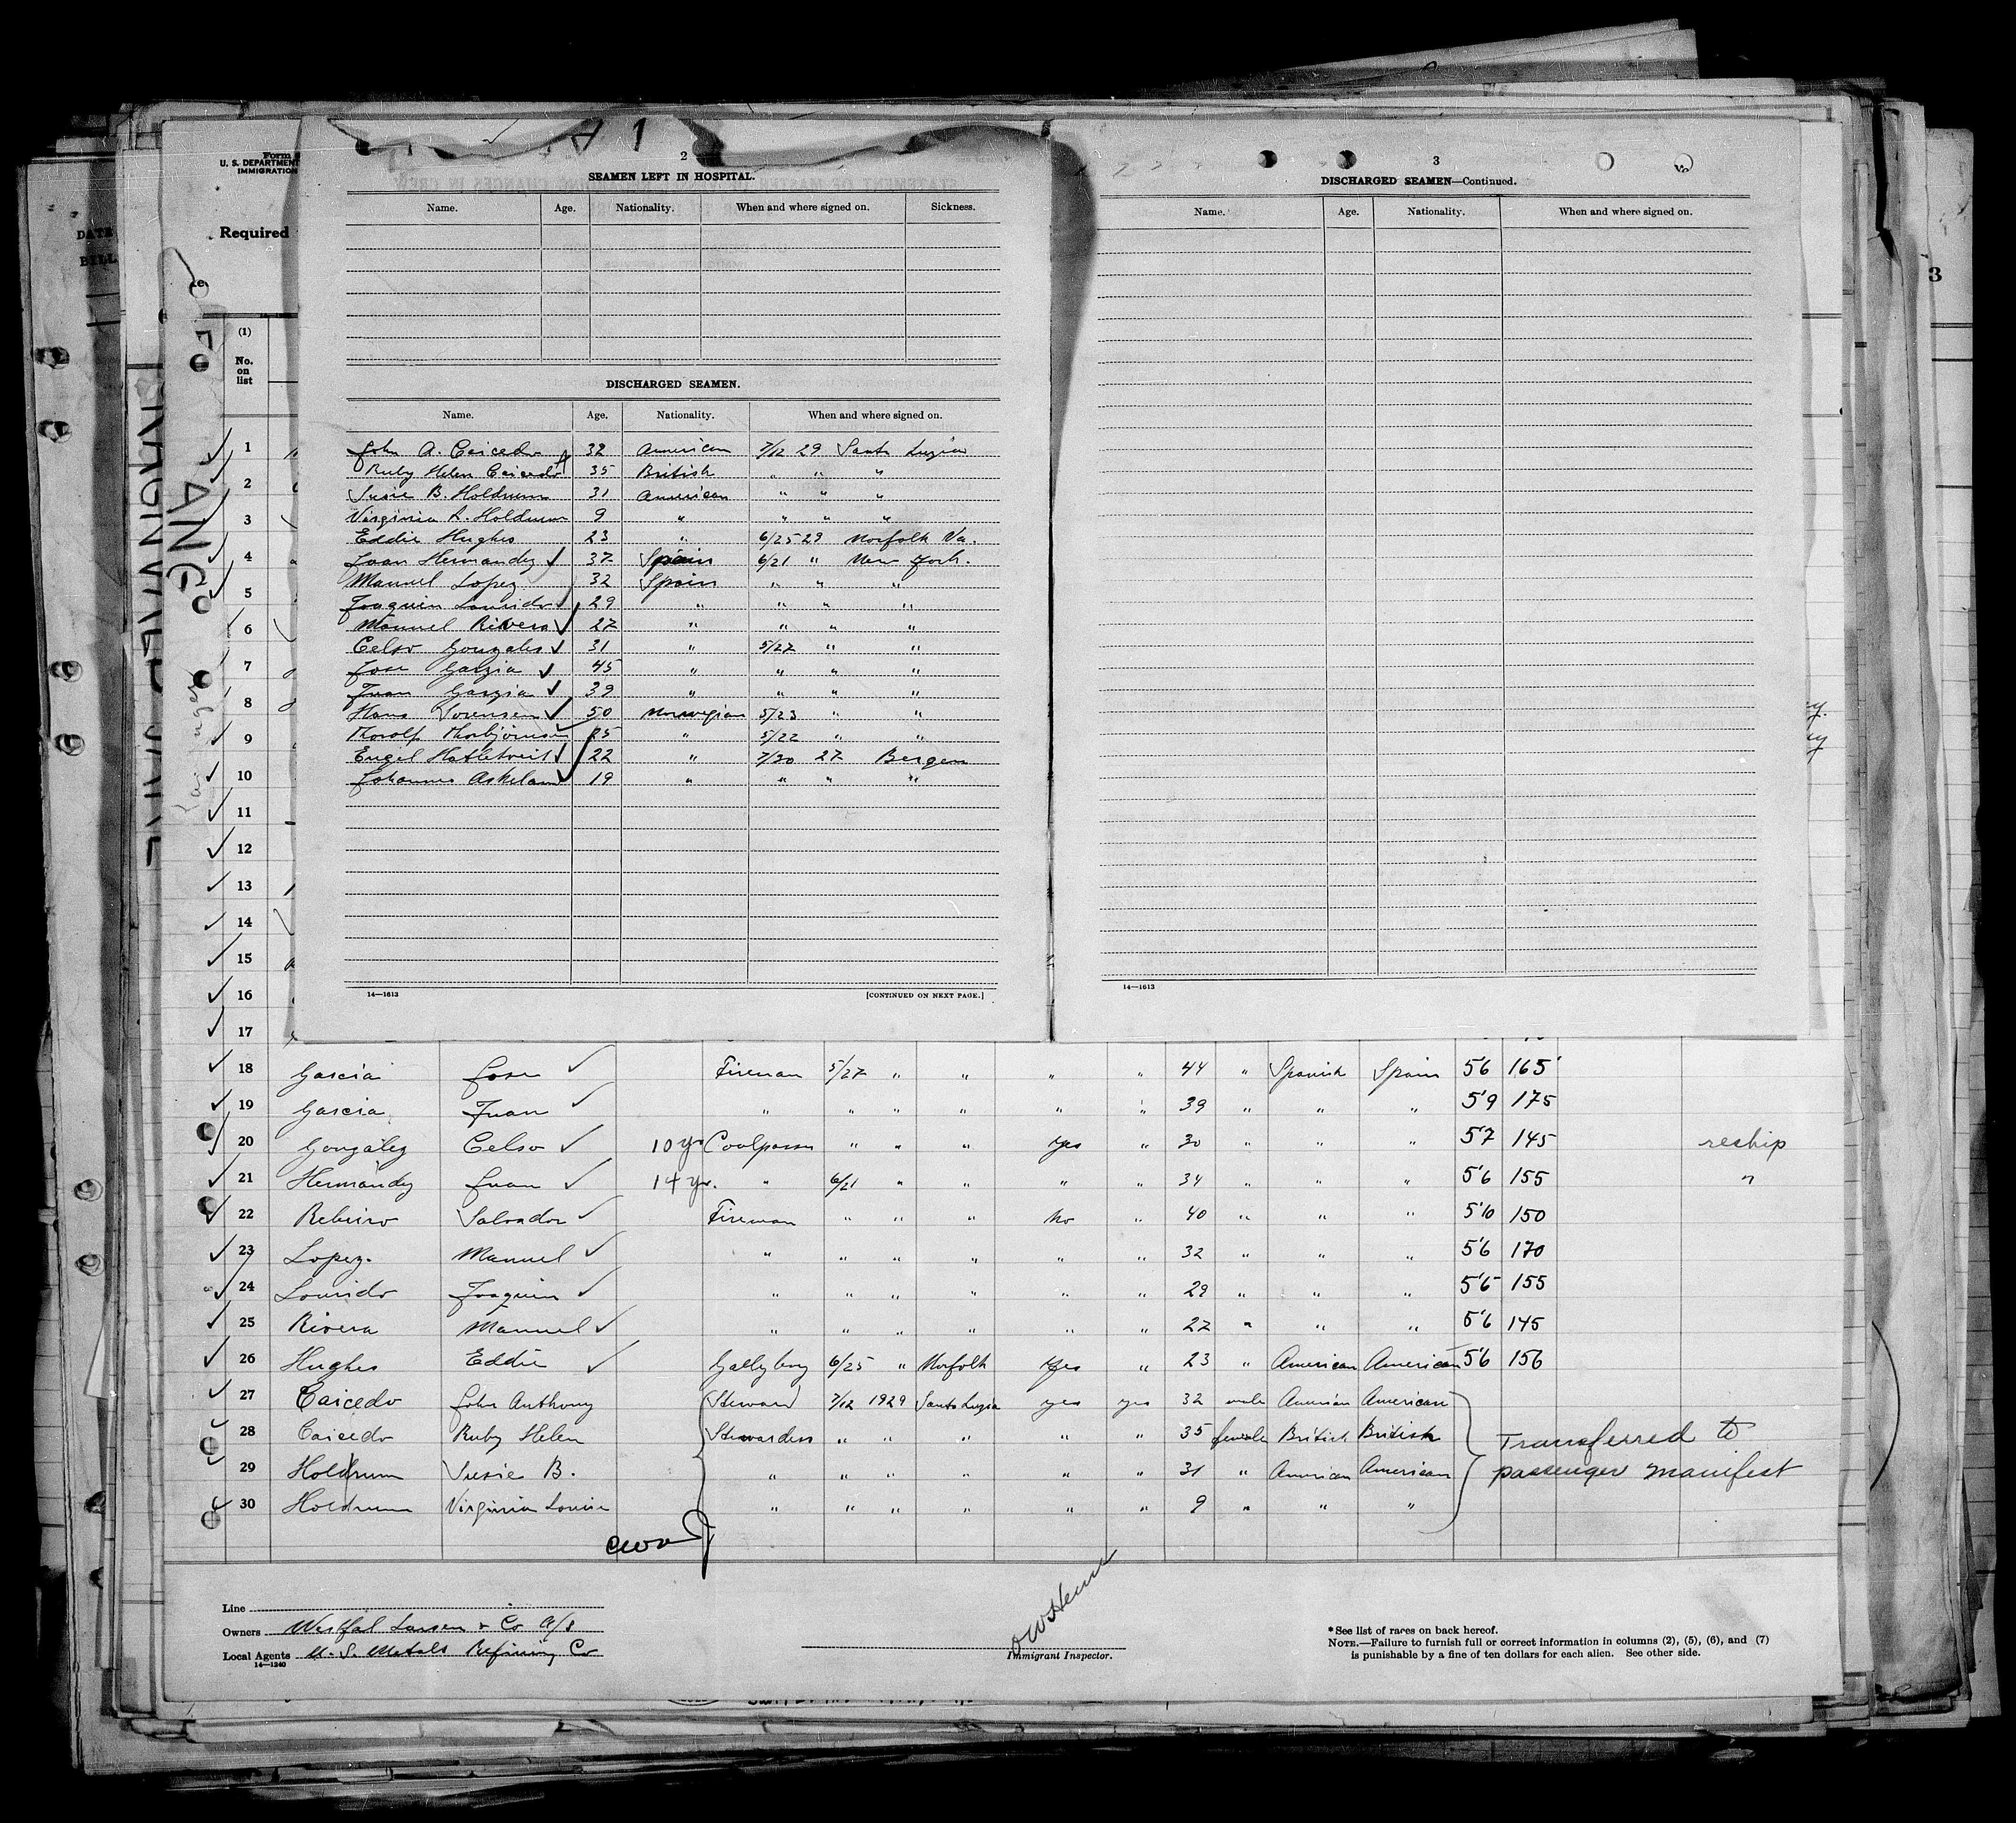 Form
U. S. DEPARTMENT
IMMIGRATION
Required
DATE
BILL
(1)
No.
on
list
1
2
3
4
5
6
7
8
9
10
11
12
13
14
15
16
17
2
SEAMEN LEFT IN HOSPITAL.
Name. Age. Nationality. When and where signed on. Sickness.
DISCHARGED SEAMEN.
Name. Age. Nationality. When and where signed on.
John A. Caicedo 32 American 7/12 29 Santa Luzia
Ruby Helen Caicedo 35 British " " "
Susie B. Holdrum 31 American " " "
Virginia L. Holdrum 9 " " " "
Eddie Hughes 23 " 6/25 29 Norfolk Va.
Juan Hernandez 37 Spain 6/21 " New York.
Manuel Lopez 32 Spain " " "
Joaquin Lourido 29 " " " "
Manuel Rivera 27 " " " "
Celso Gonzales 31 " 5/27 " "
Jose Garzia 45 " " " "
Juan Garzia 39 " " " "
Hans Sorensen 50 Norwegian 5/23 " "
Thorolf Thorbjörnsen 25 " 5/22 " "
Engel Hatletveit 22 " 7/30 27 Bergen
Johannes Askeland 19 " " " "
14—1613 [CONTINUED ON NEXT PAGE.]
3
DISCHARGED SEAMEN—Continued.
Name. Age. Nationality. When and where signed on.
14—1613
3
18 Garcia Jose Fireman 5/27 " " " " 44 " Spanish Spain 5'6 165
19 Garcia Juan " " " " " " 39 " " " 5'9 175
20 González Celso 10 yr Coalpasser " " " yes " 30 " " " 5'7 145 reship
21 Hernández Juan 14 yr. " 6/21 " " " " 34 " " " 5'6 155 "
22 Ribeiro Salvador Fireman " " " No " 40 " " " 5'10 150
23 Lopez. Manuel " " " " " " 32 " " " 5'6 170
24 Lourido Joaquin " " " " " " 29 " " " 5'6 155
25 Rivera Manuel " " " " " " 27 " " " 5'6 145
26 Hughes Eddie Galleyboy 6/25 " Norfolk Yes " 23 " American American 5'6 156
27 Caicedo John Anthony Steward 7/12 1929 Santa Luzia yes yes 32 male American American
28 Caicedo Ruby Helen Stewardess " " " " " 35 female British British
29 Holdrum Susie B. " " " " " " 31 " American American
30 Holdrum Virginia Louise " " " " " " 9 " " "
Transferred to
passenger manifest
Line
Owners Westfal Larsen & Co A/S
Local Agents U. S. Metals Refining Co
14—1240
Immigrant Inspector.
*See list of races on back hereof.
NOTE.—Failure to furnish full or correct information in columns (2), (5), (6), and (7)
is punishable by a fine of ten dollars for each alien. See other side.